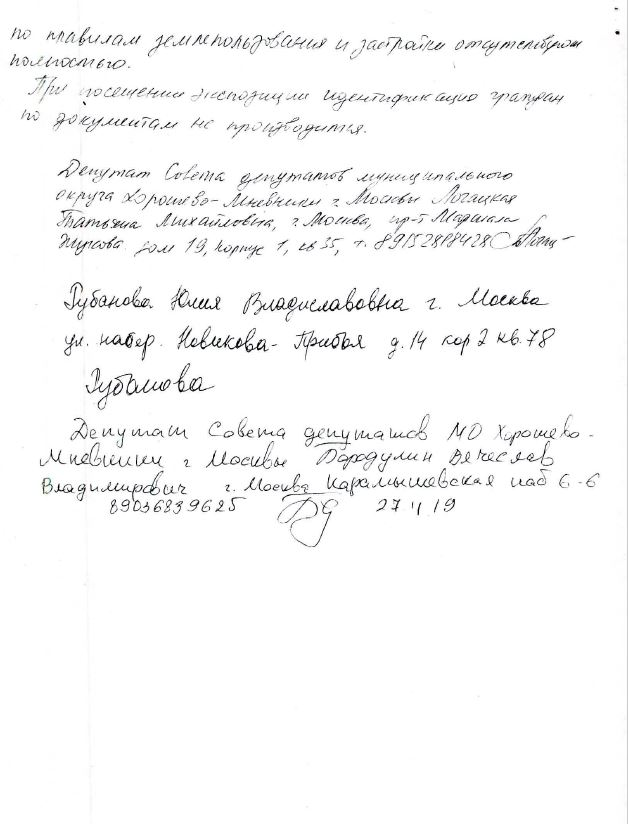 по правилам землепользования и застройки отсутствуют
полностью.
При посещении экспозиции идентификацию граждан
по документам не производится.
Депутат Совета депутатов муниципального
округа Хорошево-Мневники г. Москвы Логацкая
Татьяна Михайловна, г. Москва, пр-т Маршала
Жукова дом 19, корпус 1, кв 35, т. 89152888428
Рубанова Юлия Владиславовна г. Москва
ул. набер. Новикова-Прибоя д. 14 кор 2 кв. 78
Рубанова
Депутат Совета депутатов МО Хорошево-
Мневники г Москвы Бородулин Вячеслав
Владимирович г. Москва Карамышевская наб 6-6
89036839625 27 4 19